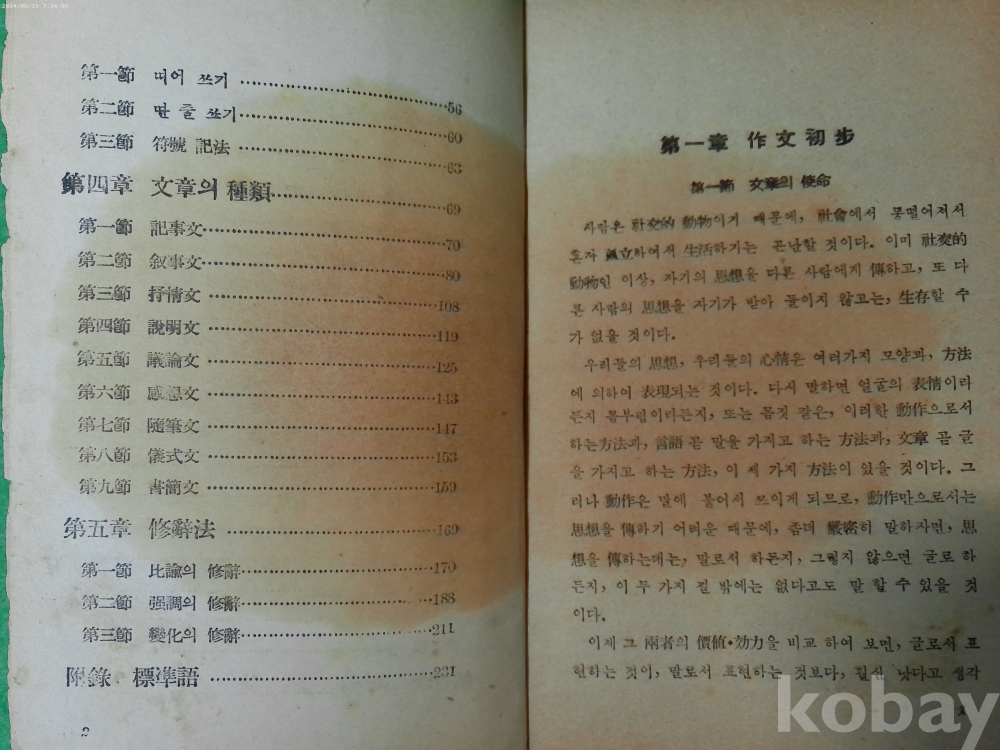 第一節 띠어 쓰기 56
第二節 딴 줄 쓰기 60
第三節 符號 記法 63
第四章 文章의 種類 69
第一節 記事文 70
第二節 叙事文 80
第三節 抒情文 108
第四節 說明文 119
第五節 議論文 125
第六節 感想文 143
第七節 隨筆文 147
第八節 儀式文 153
第九節 書簡文 159
第五章 修辭法 169
第一節 比論의 修辭 170
第二節 强調의 修辭 188
第三節 變化의 修辭 211
附錄 標準語 231
2
第一章 作文初步
第一節 文章의 使命
사람은 社交的 動物이기 때문에, 社會에서 동떨어져서
혼자 孤立하여서 生活하기는 곤난할 것이다. 이미 社交的
動物인 이상, 자기의 思想을 다른 사람에게 傳하고, 또 다
른 사람의 思想을 자기가 받아 들이지 않고는, 生存할 수
가 없을 것이다.
우리들의 思想, 우리들의 心情은 여러가지 모양과, 方法
에 의하여 表現되는 것이다. 다시 말하면 얼굴의 表情이라
든지 몸부림이라든지, 또는 몸짓 같은, 이러한 動作으로서
하는方法과, 言語 곧 말을 가지고 하는 方法과, 文章 곧 글
을 가지고 하는 方法, 이 세 가지 方法이 있을 것이다. 그
러나 動作은 말에 붙어서 쓰이게 되므로, 動作만으로서는
思想을 傳하기 어려운 때문에, 좀더 嚴密히 말하자면, 思
想을 傳하는데는, 말로서 하든지, 그렇지 않으면 글로 하
든지, 이 두 가지 길 밖에는 없다고도 말 할 수 있을 것
이다.
이제 그 兩者의 價値·効力을 비교 하여 보면, 글로서 표
현하는 것이, 말로서 표현하는 것보다, 훨신 낫다고 생각
kobay